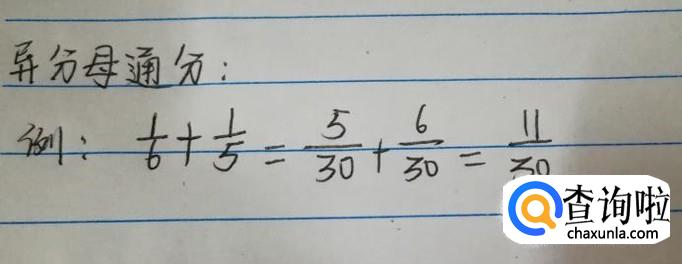 异分母通分：
例： 1/6 + 1/5 = 5/30 + 6/30 = 11/30
查询啦
chaxunla.com